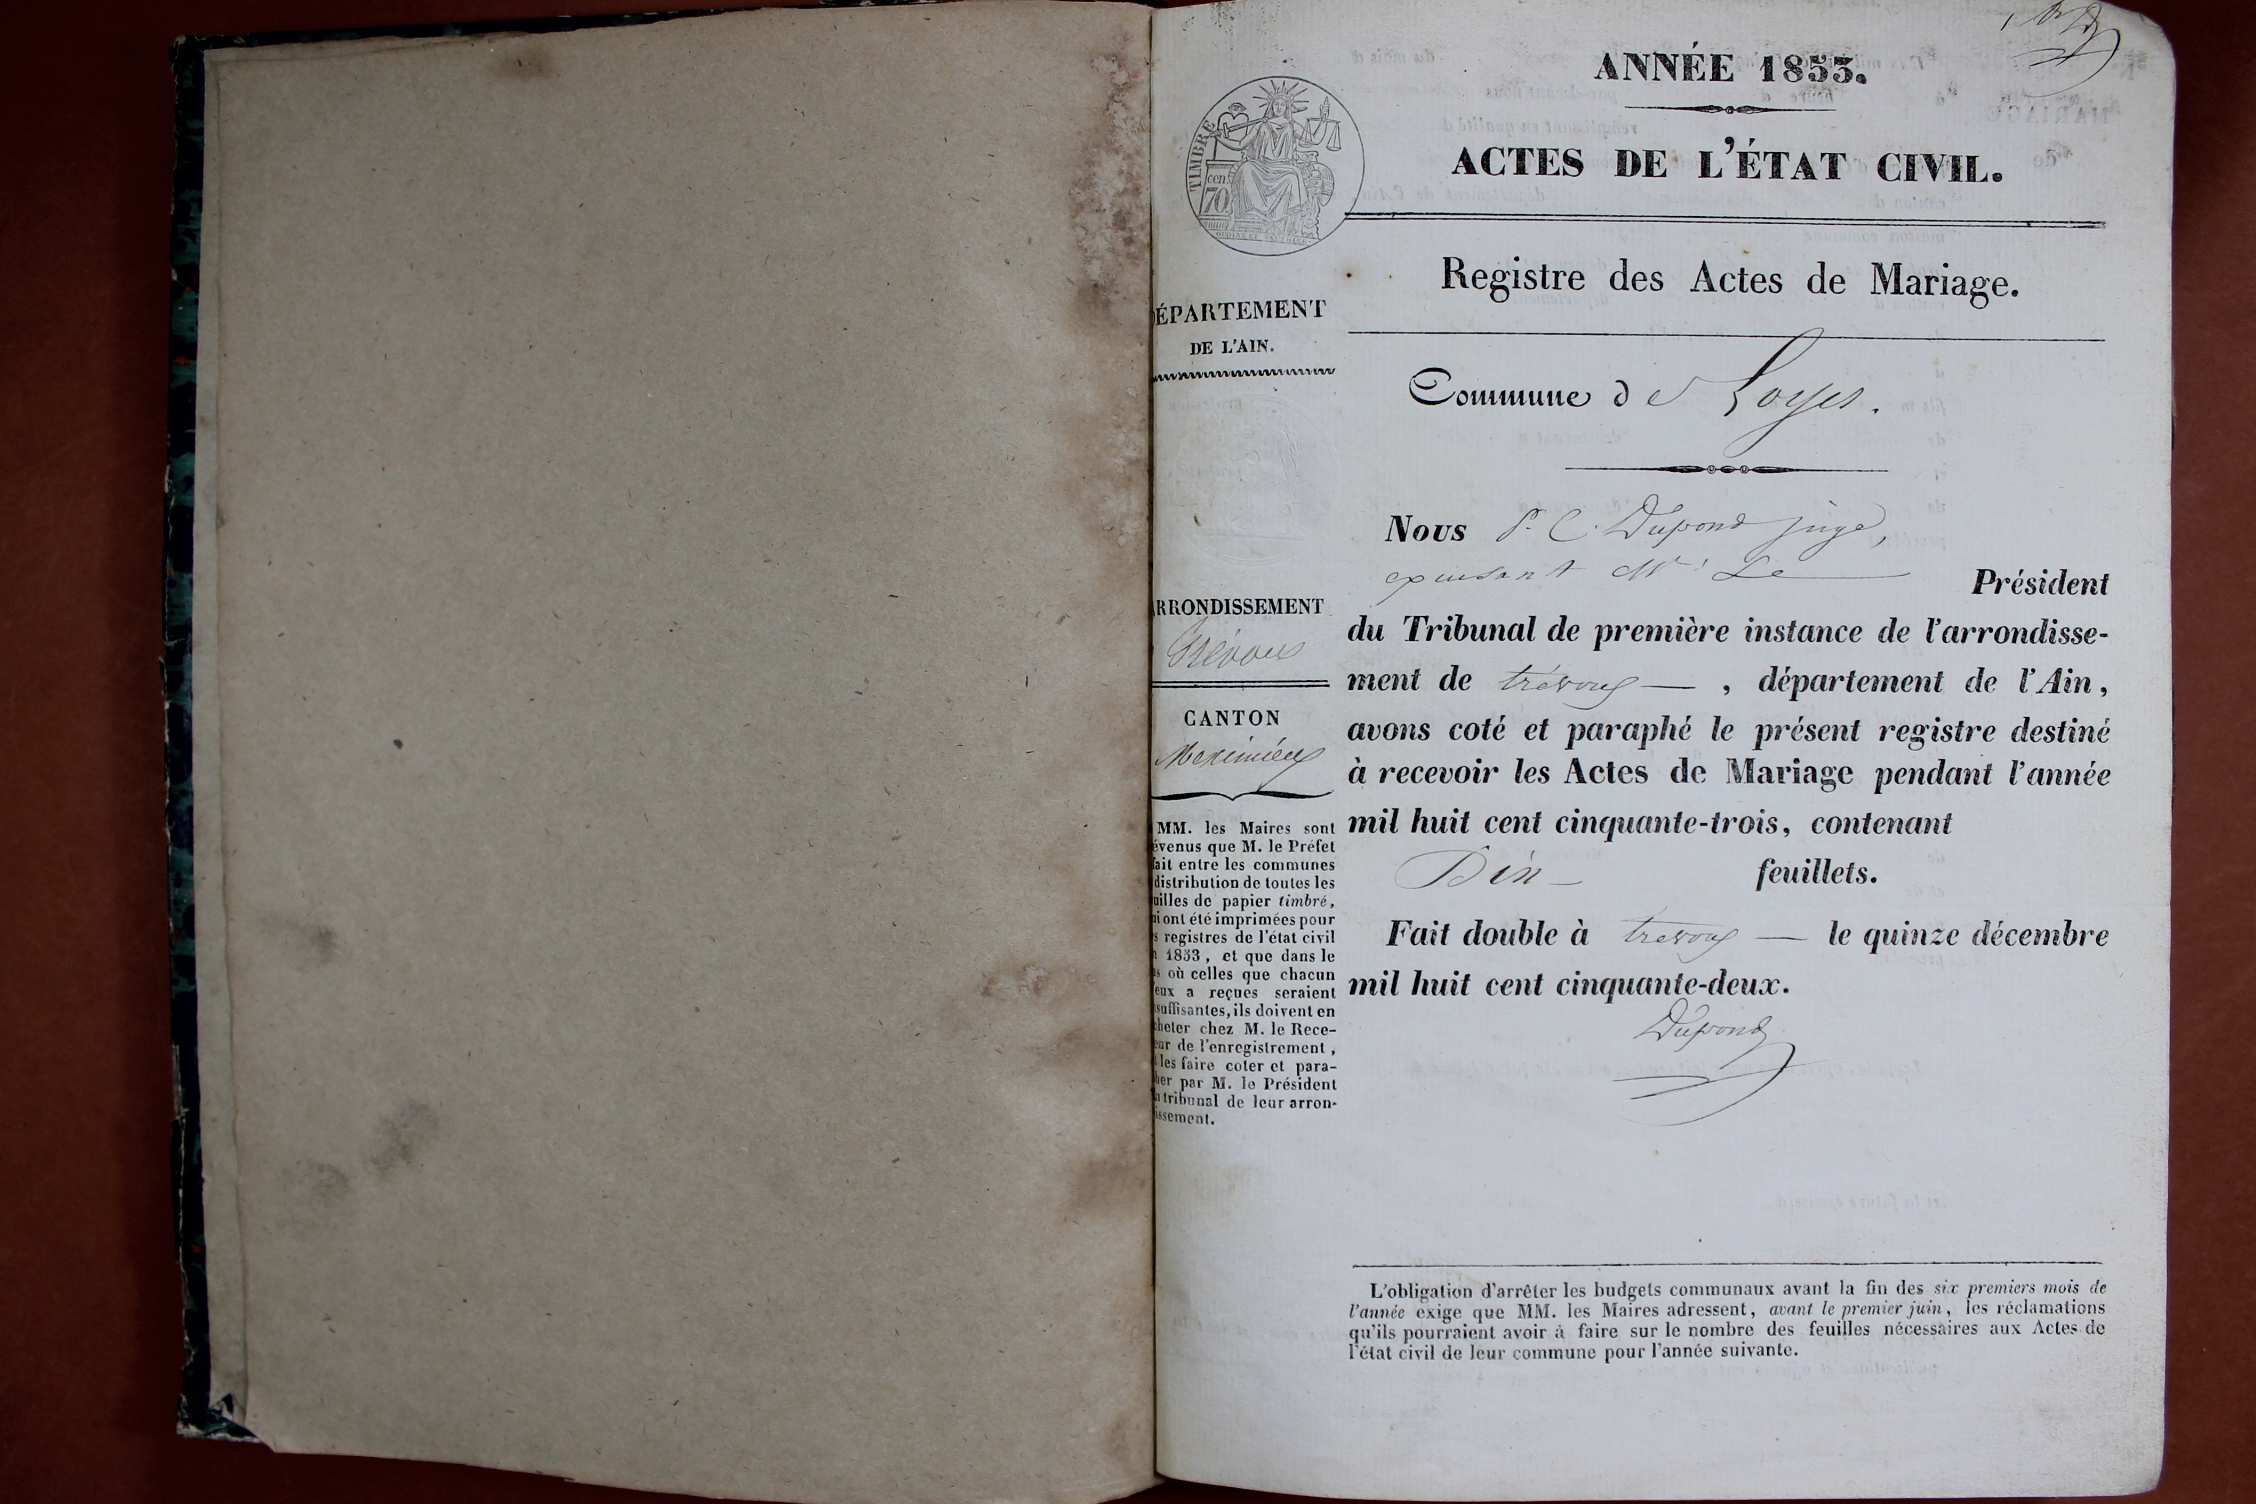 ANNÉE 1853.
ACTES DE L'ÉTAT CIVIL.
TIMBRE
cen.
70
Registre des Actes de Mariage.
ÉPARTEMENT
DE L'AIN.
Commune de Loyes.
Nous P. C. Dupond juge,
excusant Mr Le Président
du Tribunal de première instance de l'arrondisse-
ment de trévoux , département de l'Ain,
avons coté et paraphé le présent registre destiné
à recevoir les Actes de Mariage pendant l'année
mil huit cent cinquante-trois, contenant
Dix feuillets.
Fait double à trevoux le quinze décembre
mil huit cent cinquante-deux.
Dupond
RRONDISSEMENT
Trévoux
CANTON
Meximieux
MM. les Maires sont
évenus que M. le Préfet
fait entre les communes
distribution de toutes les
uilles de papier timbré,
i ont été imprimées pour
s registres de l'état civil
1853, et que dans le
s où celles que chacun
eux a reçues seraient
suffisantes, ils doivent en
cheter chez M. le Rece-
eur de l'enregistrement,
les faire coter et para-
her par M. le Président
u tribunal de leur arron-
issement.
L'obligation d'arrêter les budgets communaux avant la fin des six premiers mois de
l'année exige que MM. les Maires adressent, avant le premier juin, les réclamations
qu'ils pourraient avoir à faire sur le nombre des feuilles nécessaires aux Actes de
l'état civil de leur commune pour l'année suivante.